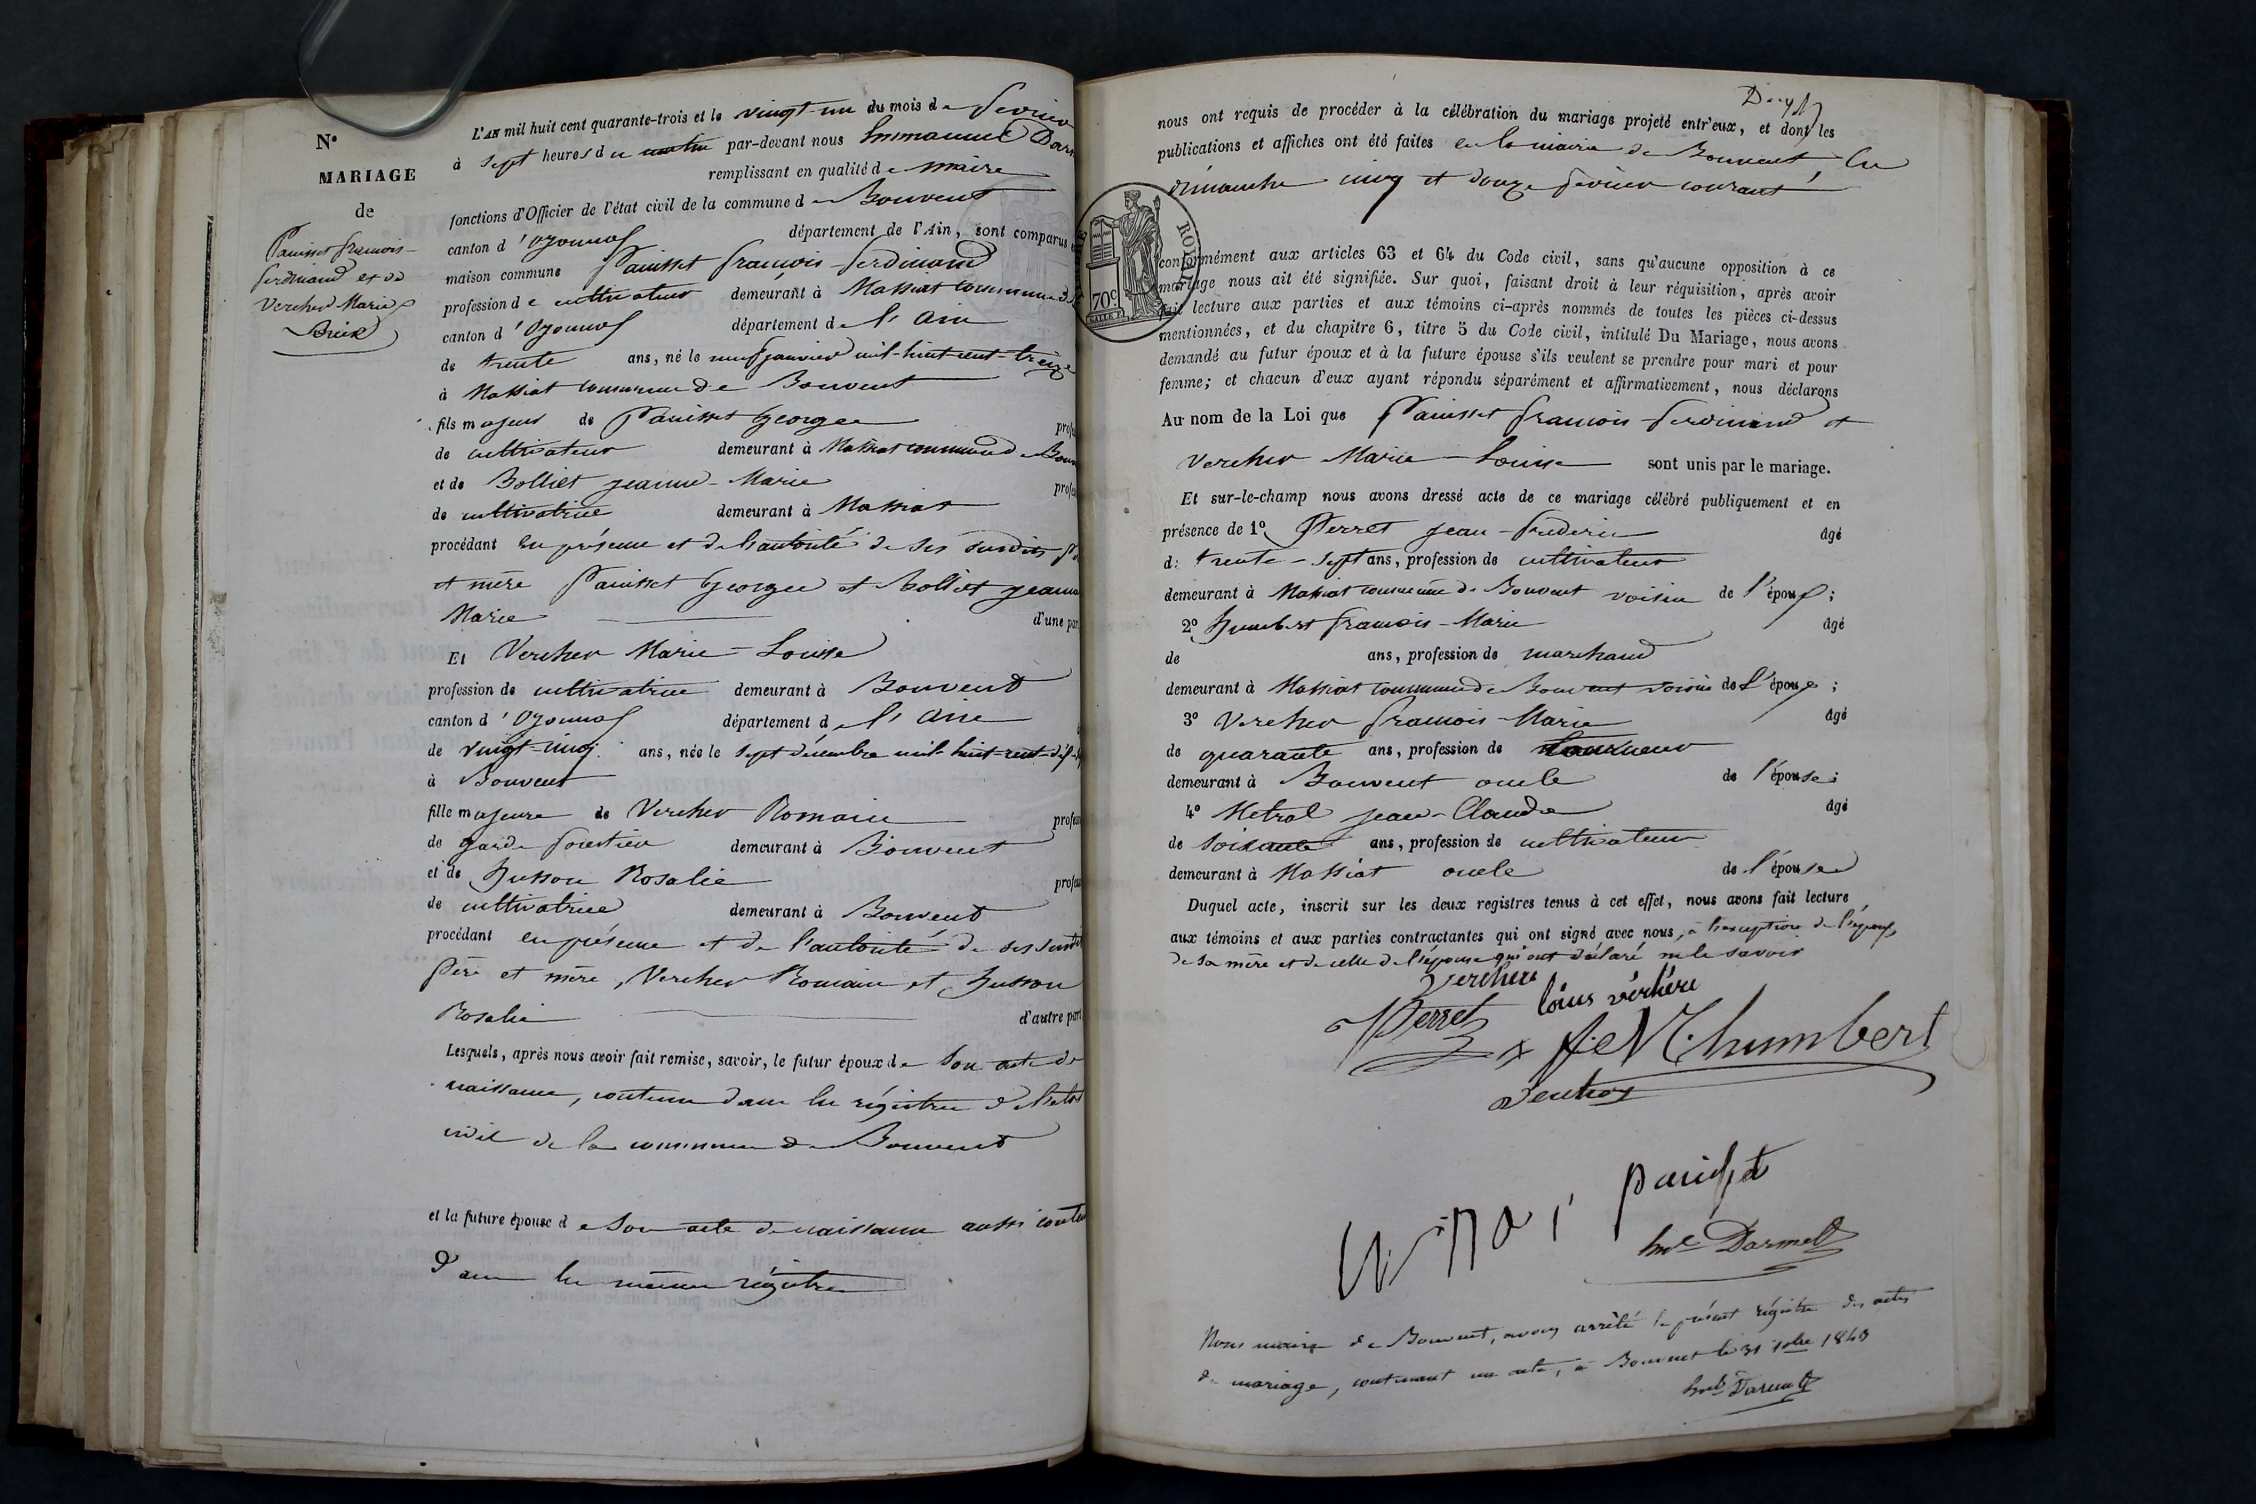 N°
MARIAGE
de
Panisset François-
ferdinand et de
Vercher Marie
Louise
L'AN mil huit cent quarante-trois et le vingt-un du mois de fevrier
à sept heures du matin par-devant nous Emmanuel Dar
remplissant en qualité de maire
fonctions d'Officier de l'état civil de la commune de Bouvent
canton d'Oyonnax département de l'Ain, sont comparus
maison commune Panisset françois-ferdinand
profession de cultivateur demeurant à Massiat commune de
canton d'Oyonnax département de l'Ain
de trente ans, né le neuf janvier mil-huit-cent-treize
à Massiat commune de Bouvent
fils majeur de Panisset George
de cultivateur demeurant à Massiat commune de Bouv
et de Bolliet jeanne-Marie
de cultivatrice demeurant à Massiat
procédant en présence et de l'autorité de ses susdits p
et mère Panisset George et Bolliet jeanne
Marie d'une par
Et Vercher Marie-Louise
profession de cultivatrice demeurant à Bouvent
canton d'Oyonnax département de l'Ain
de vingt-cinq ans, née le sept décembre mil-huit-cent-dix-
à Bouvent
fille majeure de Vercher Romain
de garde forestier demeurant à Bouvent
et de husson Rosalie
de cultivatrice demeurant à Bouvent
procédant en présence et de l'autorité de ses susdits
père et mère, Vercher Romain et husson
Rosalie d'autre part
Lesquels, après nous avoir fait remise, savoir, le futur époux de son acte de
naissance, contenu dans les régistres de l'état
civil de la commune de Bouvent
et la future épouse de son acte de naissance aussi contenu
dans les mêmes régistres
Deux
nous ont requis de procéder à la célébration du mariage projeté entr'eux, et dont les
publications et affiches ont été faites en la mairie de Bouvent, les
dimanche cinq et douze fevrier courant
conformément aux articles 63 et 64 du Code civil, sans qu'aucune opposition à ce
mariage nous ait été signifiée. Sur quoi, faisant droit à leur réquisition, après avoir
fait lecture aux parties et aux témoins ci-après nommés de toutes les pièces ci-dessus
mentionnées, et du chapitre 6, titre 5 du Code civil, intitulé Du Mariage, nous avons
demandé au futur époux et à la future épouse s'ils veulent se prendre pour mari et pour
femme; et chacun d'eux ayant répondu séparément et affirmativement, nous déclarons
Au nom de la Loi que Panisset françois-ferdinand et
Vercher Marie-Louise sont unis par le mariage.
Et sur-le-champ nous avons dressé acte de ce mariage célébré publiquement et en
présence de 1° Perret jean-frederic âgé
de trente-sept ans, profession de cultivateur
demeurant à Massiat commune de Bouvent voisin de l'époux;
2° humbert françois-Marie âgé
de ans, profession de marchand
demeurant à Massiat commune de Bouvent voisin de l'époux;
3° Vercher françois-Marie âgé
de quarante ans, profession de tourneur
demeurant à Bouvent oncle de l'épouse;
4° Metral jean-Claude âgé
de soixante ans, profession de cultivateur
demeurant à Massiat oncle de l'épouse
Duquel acte, inscrit sur les deux registres tenus à cet effet, nous avons fait lecture
aux témoins et aux parties contractantes qui ont signé avec nous, à l'exception de l'époux
de sa mère et de celle de l'épouse qui ont déclaré ne le savoir
Verchere
Perret louis vérchére
f.e M. humbert
panisset
Darmet
Nous maire de Bouvent, avons arrêté le présent régistre des actes
de mariage, contenant un acte, à Bouvent le 31 Xbre 1843
Darmet
ROYAL
70c